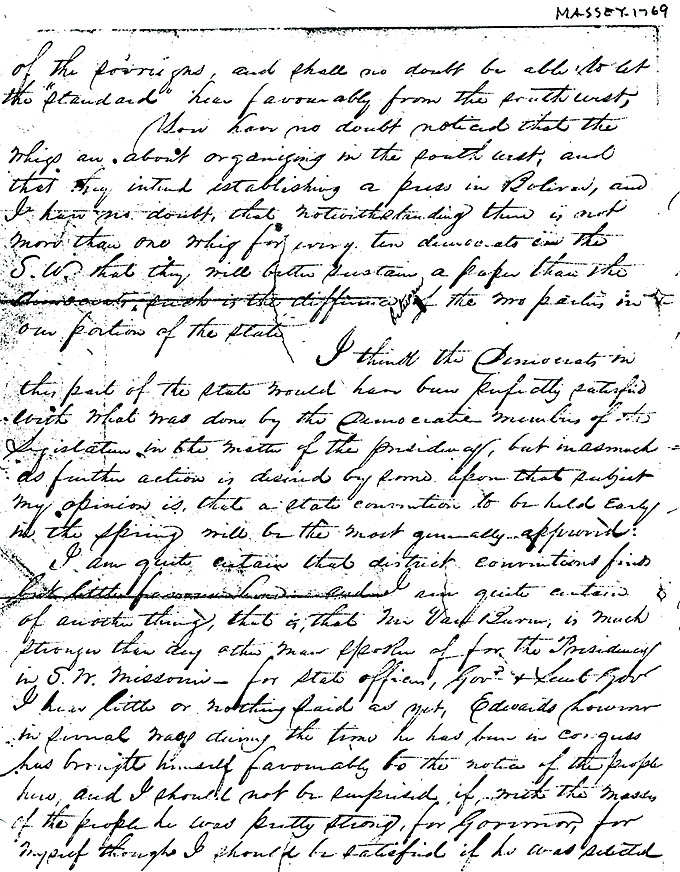 MASSEY-1769
of the sovreigns, and shall no doubt be able to let
the "standard" hear favourably from the south west,
You have no doubt noticed that the
whigs are about organizing in the south west, and
that they intend establishing a press in Bolivar, and
I have no doubt, that notwithstanding there is not
more than one whig for every ten democrats in the
S.W. that they will better sustain a paper than the
democrats, such is the difference between of the two parties in
our portion of the state
I think the Democrats in
this part of the state would have been perfectly satisfied
with what was done by the Democratic members of the
Legislature in the matter of the presidency, but inasmuch =
as further action is desired by some upon that subject
my opinion is, that a state convention to be held early
in the spring will be the most generally approved:
I am quite certain that district conventions find
but little favour here and I am quite certain
of another thing, that is, that Mr Van Buren, is much
stronger than any other man spoken of for the Presidency
in S.W. Missouri — for state officers, Govr. & Lieut Gov
I hear little or nothing said as yet, Edwards however
in several ways during the time he has been in congress
has brought himself favourably to the notice of the people
here, and I should not be surprised, if, with the masses
of the people he was pretty strong, for Governor, for
myself though I should be satisfied if he was selected